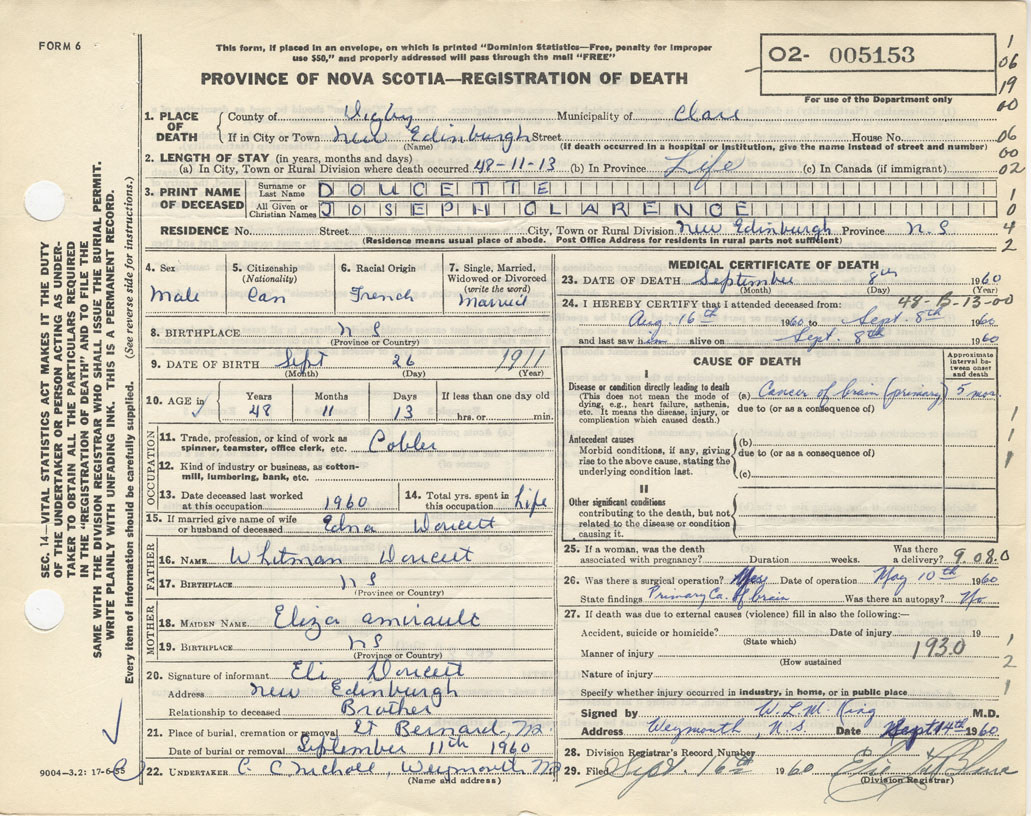 FORM 6
This form, if placed in an envelope, on which is printed "Dominion Statistics—Free, penalty for improper
use $50," and properly addressed will pass through the mail "FREE"
PROVINCE OF NOVA SCOTIA—REGISTRATION OF DEATH
O2- 005153
For use of the Department only
1
06
19
00
06
00
02
1
0
4
2
1. PLACE OF DEATH
County of Digby Municipality of Clare
If in City or Town New Edinburgh Street House No.
(Name) (If death occurred in a hospital or institution, give the name instead of street and number)
2. LENGTH OF STAY (in years, months and days)
(a) In City, Town or Rural Division where death occurred 48-11-13 (b) In Province Life (c) In Canada (if immigrant)
3. PRINT NAME OF DECEASED
Surname or Last Name DOUCETTE
All Given or Christian Names JOSEPH CLARENCE
RESIDENCE No. Street City, Town or Rural Division New Edinburgh Province N.S
(Residence means usual place of abode. Post Office Address for residents in rural parts not sufficient)
4. Sex Male
5. Citizenship (Nationality) Can
6. Racial Origin French
7. Single, Married, Widowed or Divorced (write the word) Married
8. BIRTHPLACE N S
(Province or Country)
9. DATE OF BIRTH Sept 26 1911
(Month) (Day) (Year)
10. AGE in Years Months Days If less than one day old
48 11 13 hrs. or min.
OCCUPATION
11. Trade, profession, or kind of work as spinner, teamster, office clerk, etc. Cobler
12. Kind of industry or business, as cotton-mill, lumbering, bank, etc.
13. Date deceased last worked at this occupation 1960
14. Total yrs. spent in this occupation Life
15. If married give name of wife or husband of deceased Edna Doucett
FATHER
16. NAME Whitman Doucett
17. BIRTHPLACE N S
(Province or Country)
MOTHER
18. MAIDEN NAME Eliza amirault
19. BIRTHPLACE N S
(Province or Country)
20. Signature of informant Eli Doucett
Address New Edinburgh
Relationship to deceased Brother
21. Place of burial, cremation or removal St Bernard, NS.
Date of burial or removal September 11th 1960
22. UNDERTAKER Weymouth NS
(Name and address)
MEDICAL CERTIFICATE OF DEATH
23. DATE OF DEATH September 8th 1960
(Month) (Day) (Year)
24. I HEREBY CERTIFY that I attended deceased from: 48-B-13-00
Aug. 16th 1960 to Sept. 8th 1960
and last saw him alive on Sept. 8th 1960
CAUSE OF DEATH
Approximate interval between onset and death
I
Disease or condition directly leading to death
(This does not mean the mode of dying, e.g., heart failure, asthenia, etc. It means the disease, injury, or complication which caused death.)
(a) Cancer of brain (primary) 5 mos.
due to (or as a consequence of)
Antecedent causes
Morbid conditions, if any, giving rise to the above cause, stating the underlying condition last.
(b)
due to (or as a consequence of)
(c)
1
1
1
II
Other significant conditions
contributing to the death, but not related to the disease or condition causing it.
25. If a woman, was the death associated with pregnancy? Duration weeks. Was there a delivery? 9080
26. Was there a surgical operation? Yes Date of operation May 10th 1960
State findings Primary Ca. of brain Was there an autopsy? No
27. If death was due to external causes (violence) fill in also the following:—
Accident, suicide or homicide? Date of injury 19
(State which)
Manner of injury 1930
(How sustained)
Nature of injury
Specify whether injury occurred in industry, in home, or in public place
1
2
1
Signed by W. L. M. King M.D.
Address Weymouth, N.S. Date Sept 14th 1960
28. Division Registrar's Record Number
29. Filed Sept. 16th 1960
(Division Registrar)
SEC. 14—VITAL STATISTICS ACT MAKES IT THE DUTY
OF THE UNDERTAKER OR PERSON ACTING AS UNDER-
TAKER TO OBTAIN ALL THE PARTICULARS REQUIRED
IN THE "REGISTRATION OF DEATH" AND TO FILE THE
SAME WITH THE DIVISION REGISTRAR WHO SHALL ISSUE THE BURIAL PERMIT.
WRITE PLAINLY WITH UNFADING INK. THIS IS A PERMANENT RECORD.
Every item of information should be carefully supplied. (See reverse side for instructions.)
9004-3.2: 17-6-55